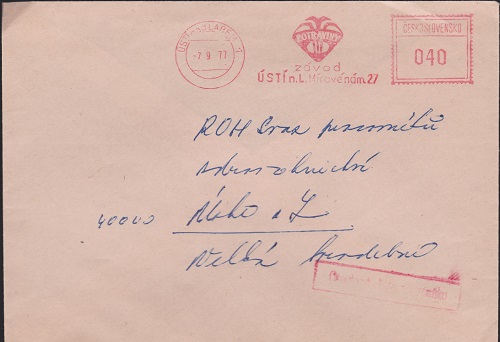 ÚSTÍ n. LABEM 2
-7.9.77
POTRAVINY
závod
ÚSTÍ n.L. Mírové nám. 27
ČESKOSLOVENSKO
040
ROH Svaz pracovníků
zdravotnictví
40000
Velká Hradební